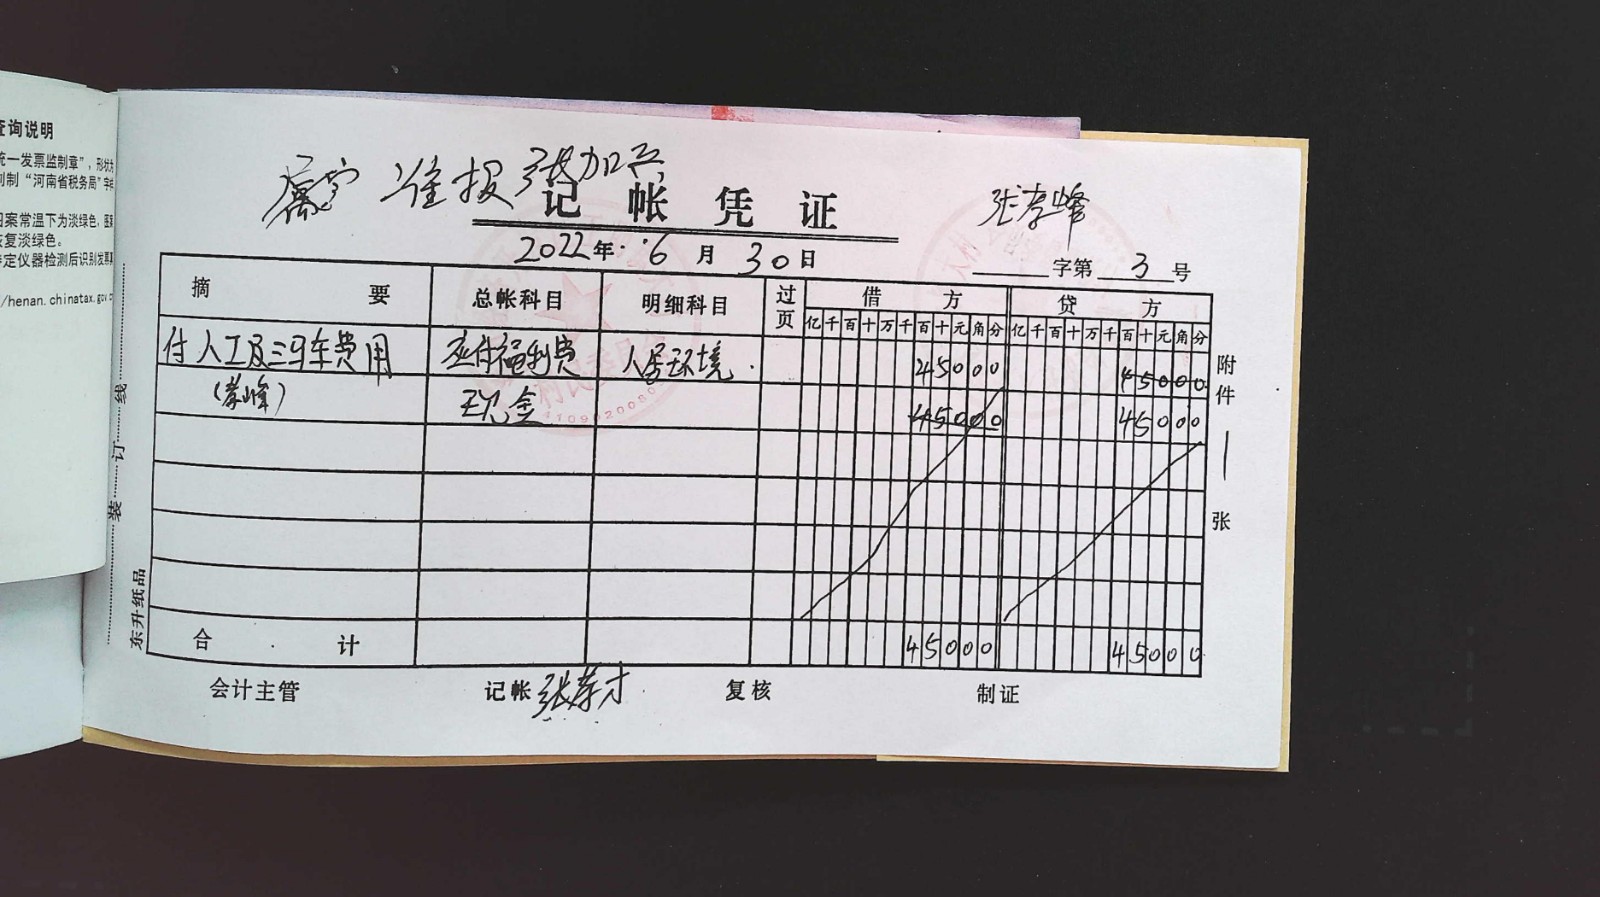 查询说明
统一发票监制章”，形状为
制制“河南省税务局”字样
图案常温下为淡绿色，
恢复淡绿色。
特定仪器检测后识别发票真
//henan.chinatax.gov.c
属实 准报 张加兵
张孝峰
记帐凭证
2022年 6月30日
字第 3 号
摘要 总帐科目 明细科目 过页 借方 贷方
亿千百十万千百十元角分 亿千百十万千百十元角分
付人工及三马车费用 应付福利费 人居环境 45000 45000
(孝峰) 现金 45000 45000
合计 45000 45000
附件 一 张
会计主管 记帐 张孝才 复核 制证
装订线
东升纸品
村民委员会